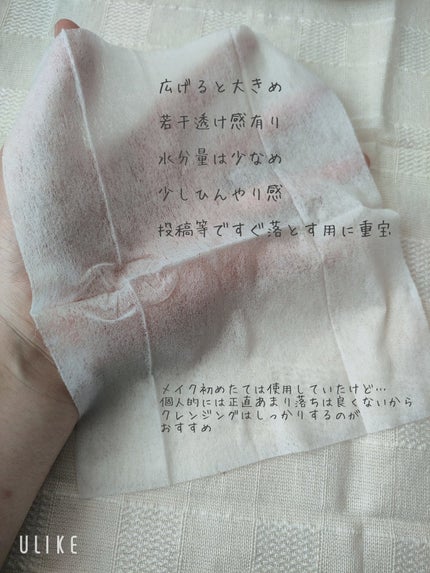 広げると大きめ
若干透け感有り
水分量は少なめ
少しひんやり感
投稿等ですぐ落とす用に重宝
メイク初めたては使用していたけど…
個人的には正直あまり落ちは良くないから
クレンジングはしっかりするのが
おすすめ
ULIKE